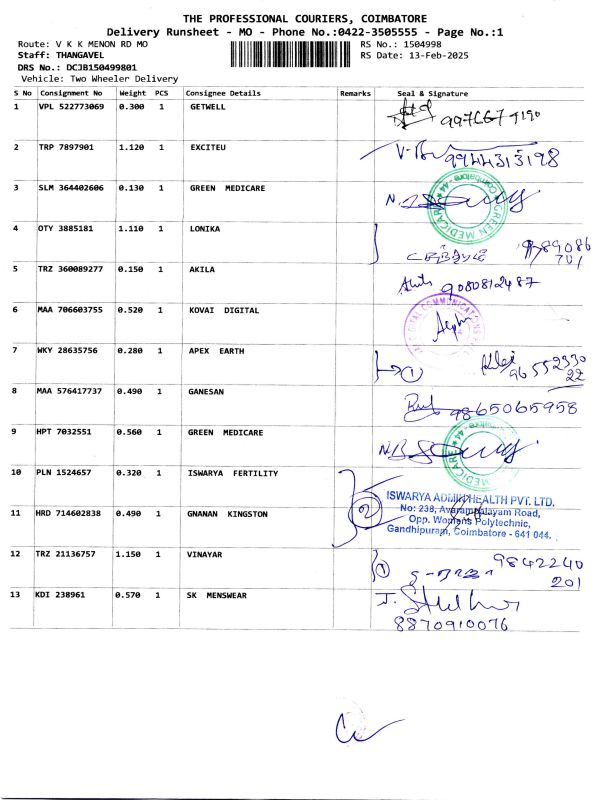 THE PROFESSIONAL COURIERS, COIMBATORE
Delivery Runsheet - MO - Phone No.:0422-3505555 - Page No.:1
Route: V K K MENON RD MO
RS No.: 1504998
Staff: THANGAVEL
RS Date: 13-Feb-2025
DRS No.: DCJB150499801
Vehicle: Two Wheeler Delivery
S No Consignment No Weight PCS Consignee Details Remarks Seal & Signature
1 VPL 522773069 0.300 1 GETWELL
2 TRP 7897901 1.120 1 EXCITEU 9944313198
3 SLM 364402606 0.130 1 GREEN MEDICARE
GREEN MEDICARE
4 OTY 3885181 1.110 1 LONIKA
5 TRZ 360089277 0.150 1 AKILA 9080812487
6 MAA 706603755 0.520 1 KOVAI DIGITAL
7 WKY 28635756 0.280 1 APEX EARTH 1 96 552330
22
8 MAA 576417737 0.490 1 GANESAN 9865065958
9 HPT 7032551 0.560 1 GREEN MEDICARE
MEDICARE
10 PLN 1524657 0.320 1 ISWARYA FERTILITY
2
ISWARYA ADMIN HEALTH PVT. LTD.
No: 238, Avarampalayam Road,
Opp. Womens Polytechnic,
Gandhipuram, Coimbatore - 641 044.
11 HRD 714602838 0.490 1 GNANAN KINGSTON
12 TRZ 21136757 1.150 1 VINAYAR 1 9842240
201
13 KDI 238961 0.570 1 SK MENSWEAR
8870910076